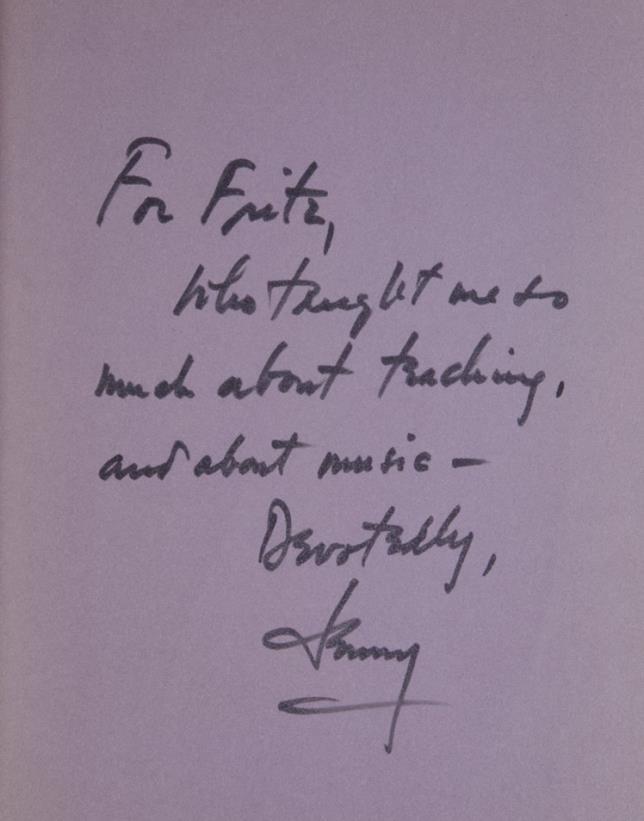 For Fritz,
who taught me so
much about teaching,
and about music —
Devotedly,
Lenny